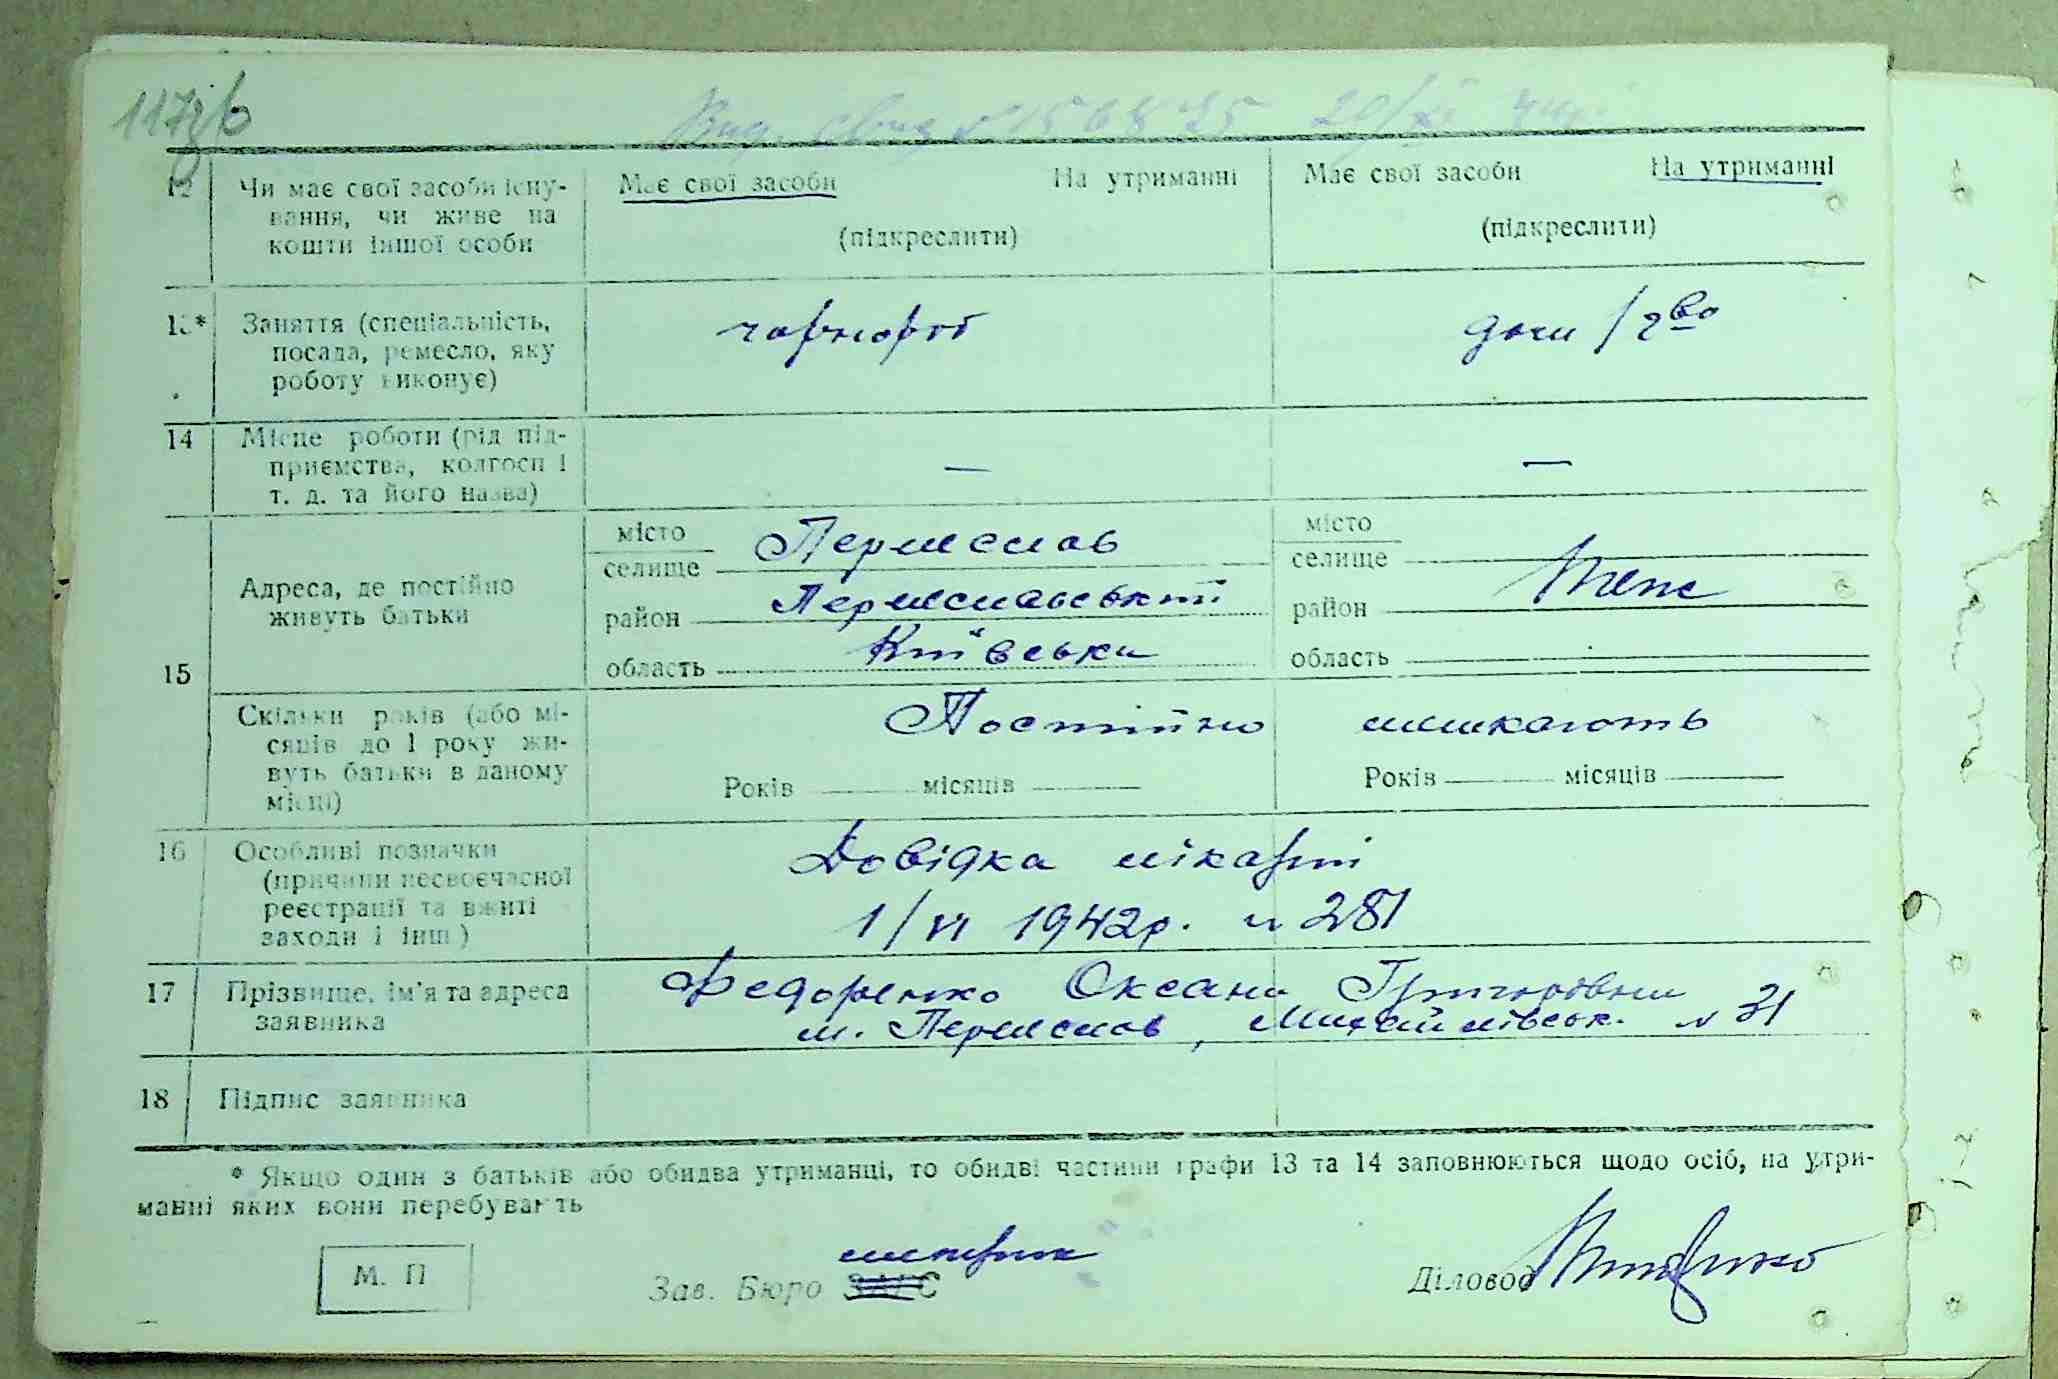 117 зв
Вид. свид № 20/XI
12 Чи має свої засоби існу- Має свої засоби На утриманні Має свої засоби На утриманні
вання, чи живе на
кошти іншої особи (підкреслити) (підкреслити)
13* Заняття (спеціальність, чорнороб дом / г во
посада, ремесло, яку
роботу виконує)
14 Місце роботи (рід під-
приємства, колгосп і — —
т. д. та його назва)
місто Переяслав місто
селище селище
Адреса, де постійно
живуть батьки
район Переяславський район Теж
область Київська область
15
Скільки років (або мі- Постійно мешкають
сяців до 1 року жи-
вуть батьки в даному
місці) Років місяців Років місяців
16 Особливі позначки Довідка лікарні
(причини несвоєчасної
реєстрації та вжиті 1/VI 1942р. № 281
заходи і інш)
17 Прізвище, ім'я та адреса Федоренко Оксана Григорівна
заявника м. Переяслав, Михайлівськ. № 31
18 Підпис заявника
* Якщо один з батьків або обидва утриманці, то обидві частини графи 13 та 14 заповнюються щодо осіб, на утри-
манні яких вони перебувають
М. П Зав. Бюро ЗАГС Діловод